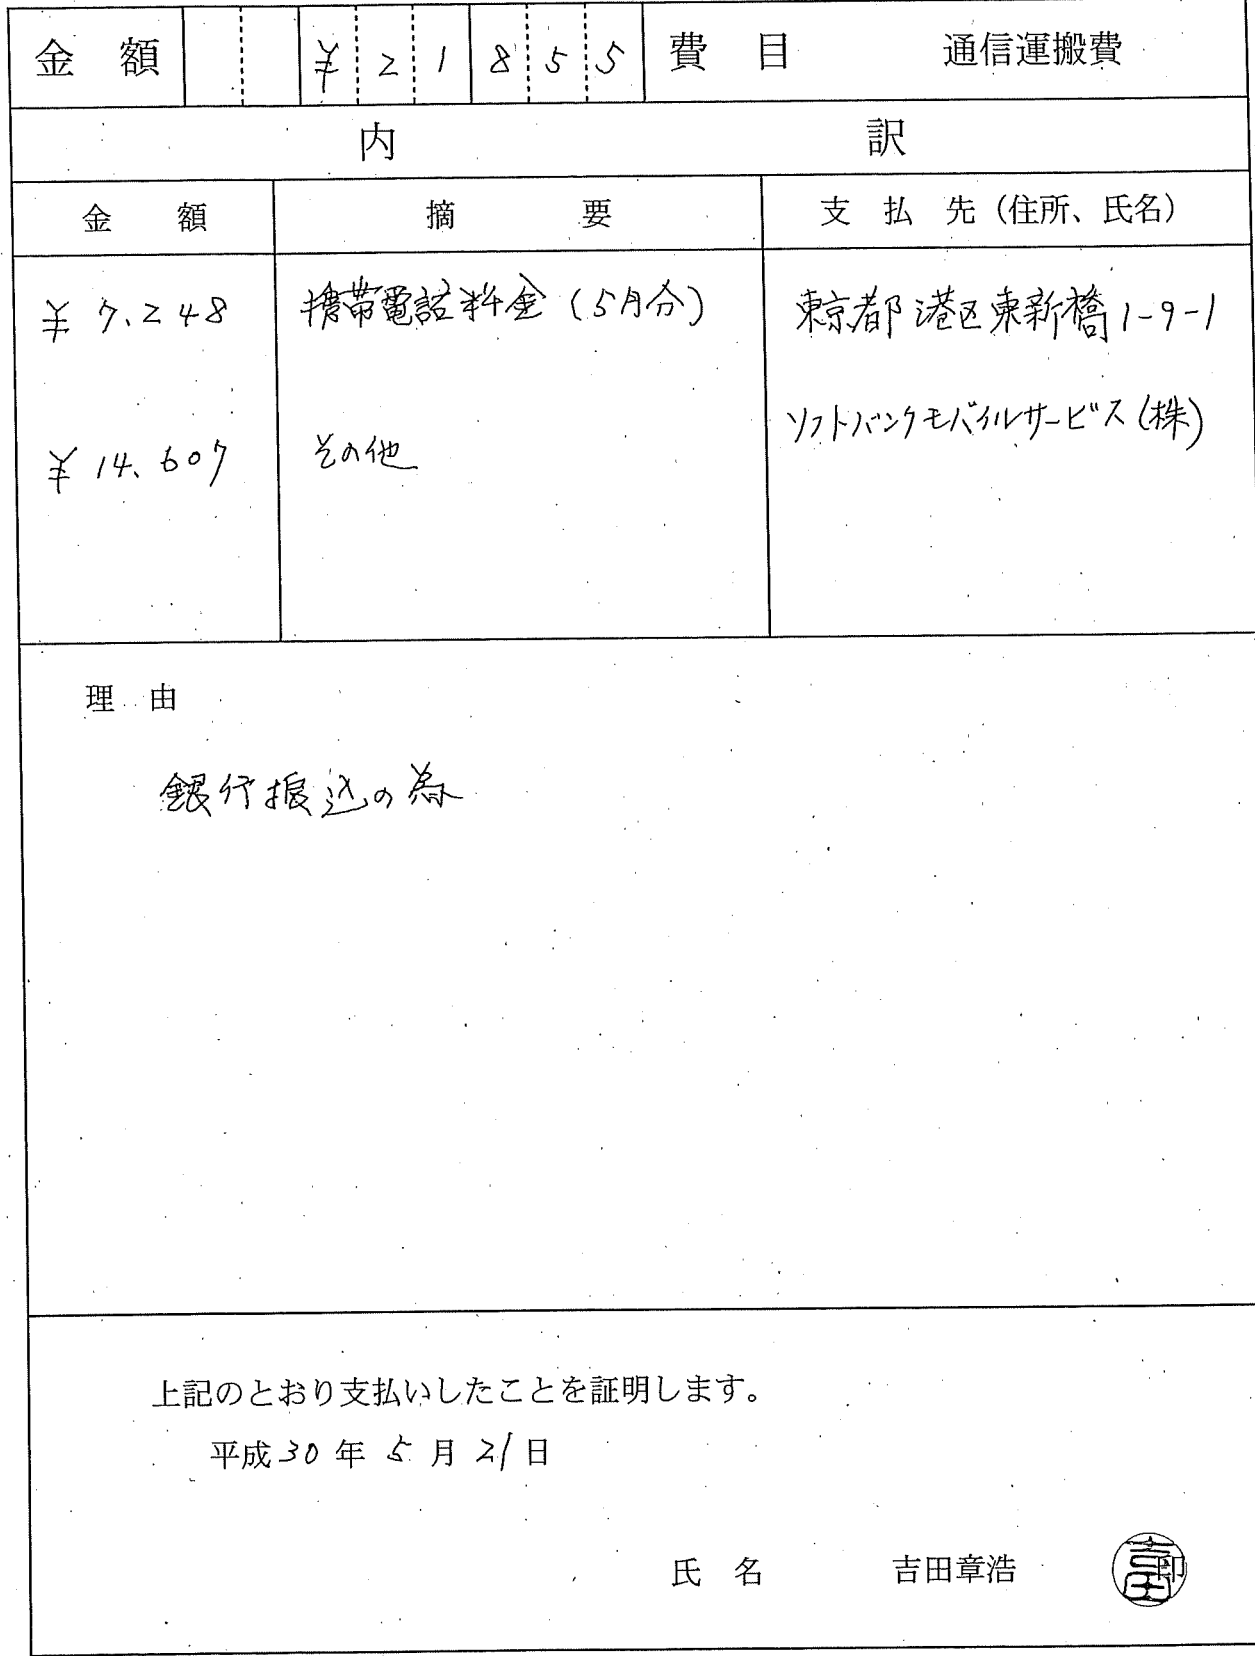 金額 ¥21855 費目 通信運搬費
内訳
金額 摘要 支払先(住所、氏名)
¥7.248 携帯電話料金(5月分) 東京都港区東新橋1-9-1
ソフトバンクモバイルサービス(株)
¥14.607 その他
理由
銀行振込の為
上記のとおり支払いしたことを証明します。
平成30年5月21日
氏名 吉田章浩 印
吉田